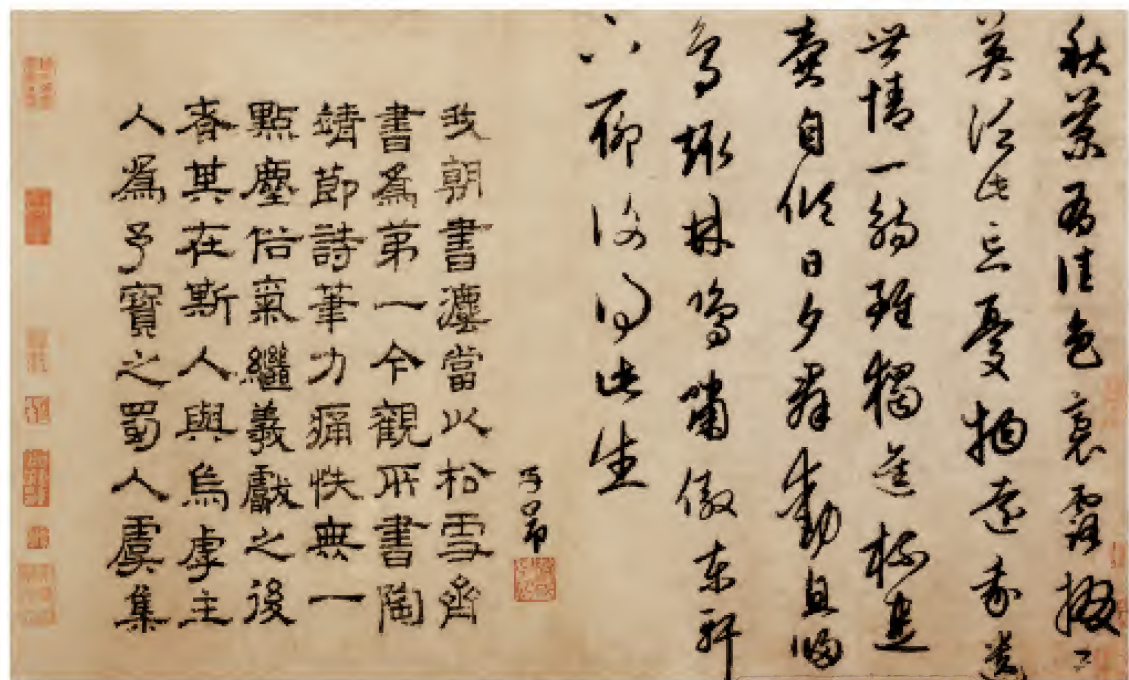 秋菊有佳色裛露掇其
英汎此忘憂物遠我遺
世情一觴雖獨進杯盡
壺自傾日夕羣動息歸
鳥趨林鳴嘯傲東軒
下聊復得此生
子昂
我朝書灋當以松雪齊
書爲第一今觀所書陶
靖節詩筆力痛快無一
點塵俗氣繼羲獻之後
者其在斯人與烏虖主
人爲予寶之蜀人虞集